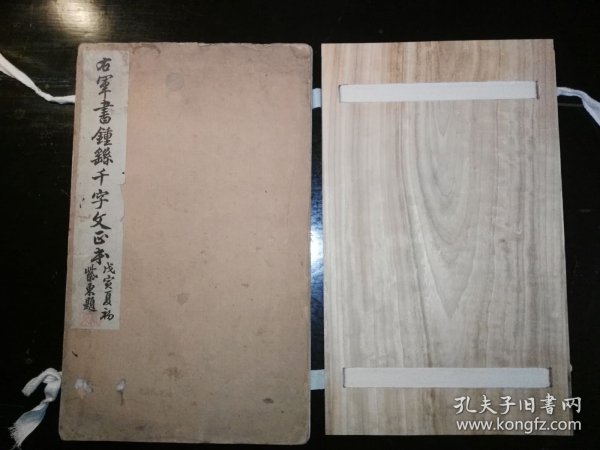 右軍書鍾繇千字文正本
戊寅夏初
紫東題
孔夫子旧书网
www.kongfz.com